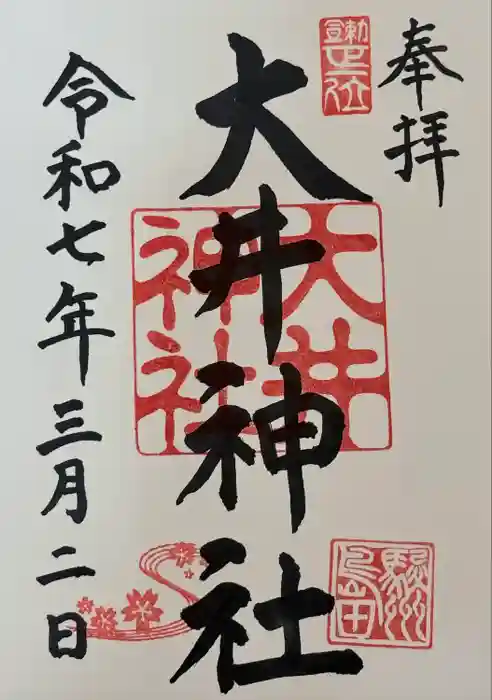 奉拝
正一位
大井神社
大井
神社
駿州
島田
令和七年三月二日